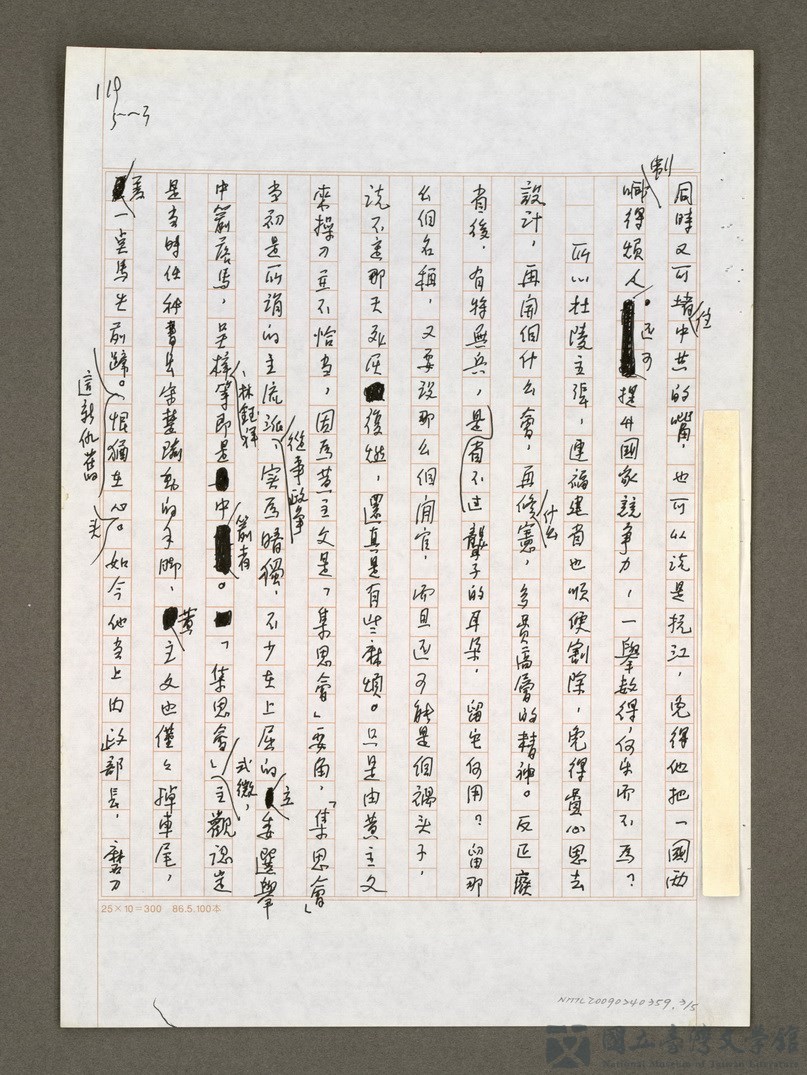 119
5-3
同時又可堵住中共的嘴，也可以說是抗江，免得他把一國兩
制唧得煩人。還可提升國家競爭力，一舉數得，何樂而不為？
所以杜陵主張，連福建省也順便割除，免得費心思去
設計，再開個什么會，再修什么憲，多費高層的精神。反正廢
省後，有將無兵，是省不过聾子的耳朵，留它何用？留那
么個名稱，又要設那么個閒官，而且还可能是個禍头子，
说不定那天死灰復燃，還真是有些麻煩。只是由黃主文
來操刀並不恰当，因為黃主文是「集思會」要角，「集思會」
当初是所謂的主流派，從事政爭，实為暗獨，不少在上屆的立委選舉
中箭落馬，吳梓、林鈺祥等即是中箭者。「集思會」式微，主觀認定
是当時任秘書長宋楚瑜動的手脚，黃主文也僅以掉車尾，
差一点馬失前蹄。這新仇舊恨猶在心头。如今他当上內政部長，磨刀
25×10=300 86.5.100本
NMTL20090340359.3/5
國立臺灣文學館
National Museum of Taiwan Literature